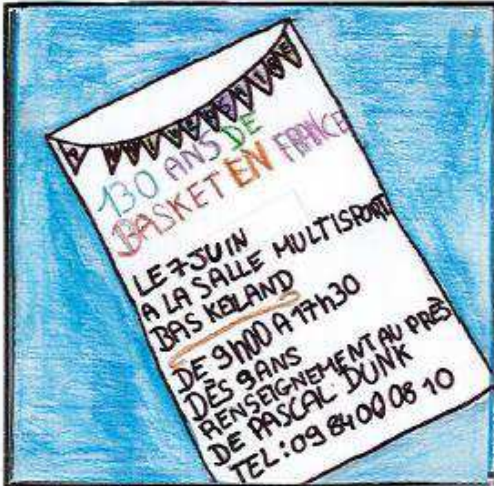 130 ANS DE
BASKET EN FRANCE
LE 7 JUIN
A LA SALLE MULTISPORT
BASKELAND
DE 9h00 A 17h30
DÈS 9ANS
RENSEIGNEMENT AU PRÈS
DE PASCAL DUNK
TEL : 09 84 00 08 10